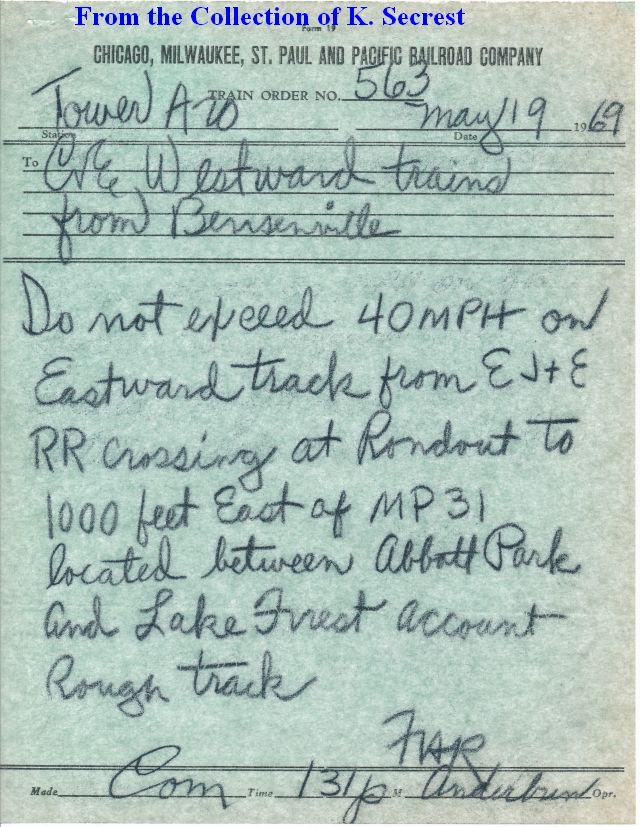 From the Collection of K. Secrest
Form 19
CHICAGO, MILWAUKEE, ST. PAUL AND PACIFIC RAILROAD COMPANY
TRAIN ORDER NO. 563
Tower A 20 May 19 1969
Station Date
To C&E Westward trains
from Bensenville
Do not exceed 40MPH on
Eastward track from E J + E
RR crossing at Rondout to
1000 feet East of MP 31
located between Abbott Park
And Lake Forest account
Rough track
Made Com Time 131p M Opr.